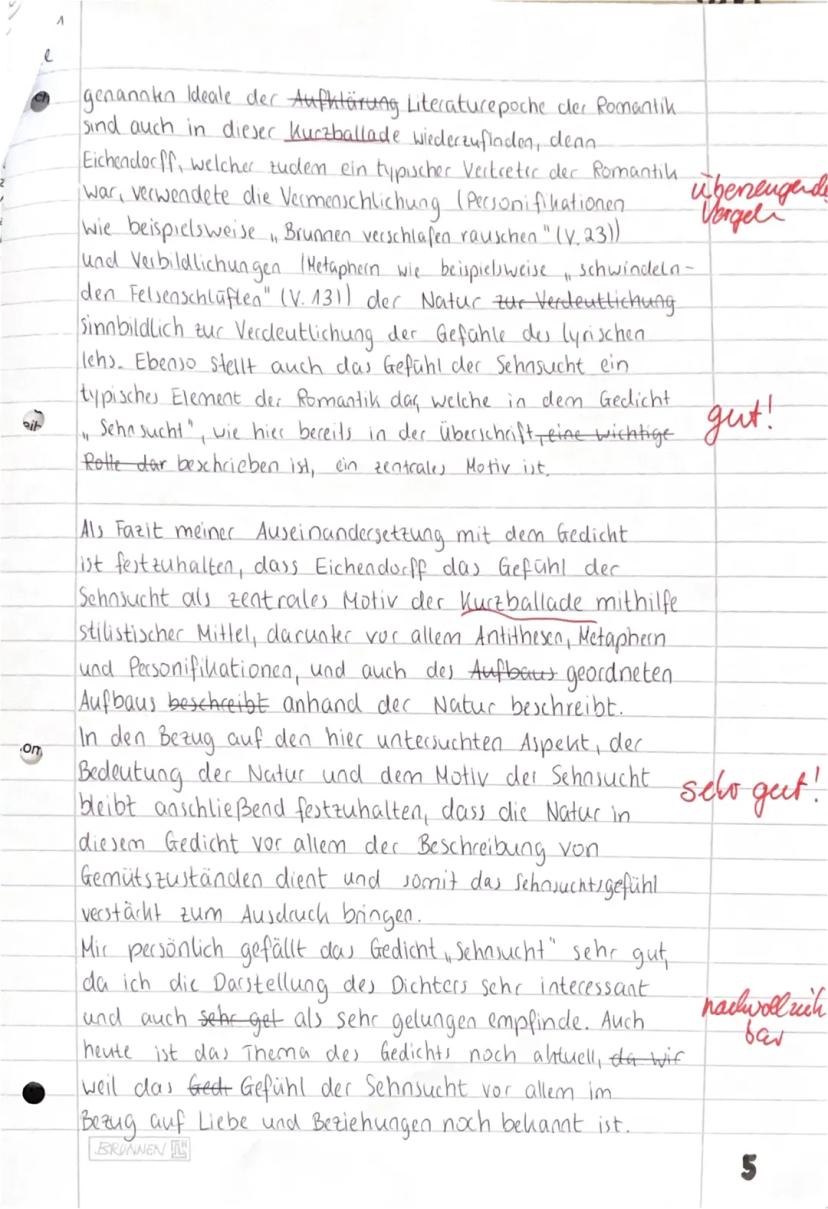 1
e
ch
genannten Ideale der Aufklärung Literaturepoche der Romantik
sind auch in dieser Kurzballade wiederzufinden, denn
Eichendorff, welcher zudem ein typischer Vertreter der Romantik
war, verwendete die Vermenschlichung (Personifikationen
überzeugende
Vorgeh
wie beispielsweise „Brunnen verschlafen rauschen" (V. 23))
und Verbildlichungen (Metaphern wie beispielsweise „schwindeln-
den Felsenschlüften" (V. 13)) der Natur zur Verdeutlichung
sinnbildlich zur Verdeutlichung der Gefühle des lyrischen
Ichs. Ebenso stellt auch das Gefühl der Sehnsucht ein
typisches Element der Romantik dar, welche in dem Gedicht
eit
„Sehnsucht", wie hier bereits in der Überschrift, eine wichtige
gut!
Rolle dar beschrieben ist, ein zentrales Motiv ist.
Als Fazit meiner Auseinandersetzung mit dem Gedicht
ist festzuhalten, dass Eichendorff das Gefühl der
Sehnsucht als zentrales Motiv der Kurzballade mithilfe
stilistischer Mittel, darunter vor allem Antithesen, Metaphern
und Personifikationen, und auch des Aufbaus geordneten
Aufbaus beschreibt anhand der Natur beschreibt.
on
In den Bezug auf den hier untersuchten Aspekt, der
Bedeutung der Natur und dem Motiv der Sehnsucht
sehr gut!
bleibt anschließend festzuhalten, dass die Natur in
diesem Gedicht vor allem der Beschreibung von
Gemütszuständen dient und somit das Sehnsuchtsgefühl
verstärkt zum Ausdruck bringen.
Mir persönlich gefällt das Gedicht „Sehnsucht" sehr gut,
da ich die Darstellung des Dichters sehr interessant
und auch sehr gel als sehr gelungen empfinde. Auch
nachvollzieh
bar
heute ist das Thema des Gedichts noch aktuell, da wir
weil das Ged Gefühl der Sehnsucht vor allem im
Bezug auf Liebe und Beziehungen noch bekannt ist.
BRUNNEN
5